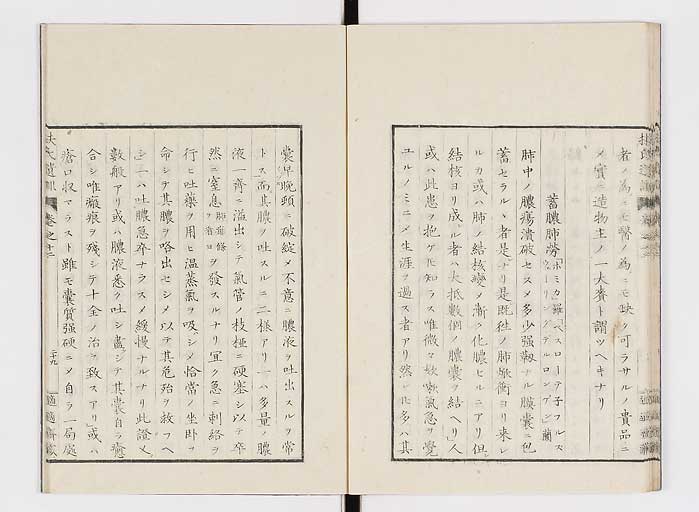 者ノ為ニモ醫ノ為ニモ缺ク可ラサルノ貴品ニ
メ實ニ造物主ノ一大賚ト謂ツヘキナリ
蓄膿肺勞
肺中ノ膿瘍潰破セスメ多少强靱ナル膿囊ニ包
蓄セラルヽ者是ナリ是既徃ノ肺焮衝ヨリ来レ
ルカ或ハ肺ノ結核變メ漸ク化膿セルニアリ但
結核ヨリ成ル者ハ大抵數個ノ膿囊ヲ結ヘリ人
或ハ此患ヲ抱ケ𪜈知ラス唯微々欬嗽氣急ヲ覺
ユルノミニメ生涯ヲ過ス者アリ然レ𪜈多ハ其
囊早晩頭ニ破綻メ不意ニ膿液ヲ吐出スルヲ常
トス而其膿ヲ吐スルニ二様アリ一ハ多量ノ膿
液一齊ニ溢出シテ氣管ノ枝椏ニ硬塞シ以テ卒
然ニ窒息ヲ發スルナリ宜ク急ニ刺絡ヲ
行ヒ吐藥ヲ用ヒ温蒸氣ヲ吸シメ恰當ノ坐卧ヲ
命シテ其膿ヲ咯出セシメ以テ其危殆ヲ救フヘ
シ二ハ吐膿急卒ナラスメ緩慢ナルナリ此證又
數般アリ或ハ膿液悉ク吐シ盡シテ其囊自ラ癒
合シ唯瘢痕ヲ殘シテ十全ノ治ヲ致スアリ或ハ
瘡口收マラスト雖モ囊質强硬ニメ自ラ一局處
扶氏遺訓 卷之十二 二十九 適適齋藏